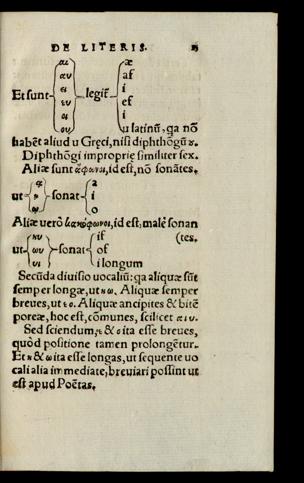 DE LITERIS.
αι æ
αυ af
ει i
Et sunt ευ legit̃ ef
οι i
ου u latinũ, qa nõ
habẽt aliud u Gręci, nisi diphthõgũ ȣ.
Diphthõgi improprie similiter sex.
Aliæ sunt ἄφωνοι, id est, nõ sonãtes,
ᾳ a
ut ῃ sonat i
ῳ o
Aliæ uerò κακόφωνοι, id est, malè sonan
(tes,
ηυ if
ut ωυ sonat of
υι i longum
Secũda diuisio uocaliũ: qa aliquæ sũt
semper longæ, ut η ω. Aliquæ semper
breues, ut ε ο. Aliquæ ancipites & bitẽ
poreæ, hoc est, cõmunes, scilicet α ι υ.
Sed sciendum, ε & ο ita esse breues,
quòd positione tamen prolongẽtur.
Et η & ω ita esse longas, ut sequente uo
cali alia immediate, breuiari possint ut
est apud Poëtas.